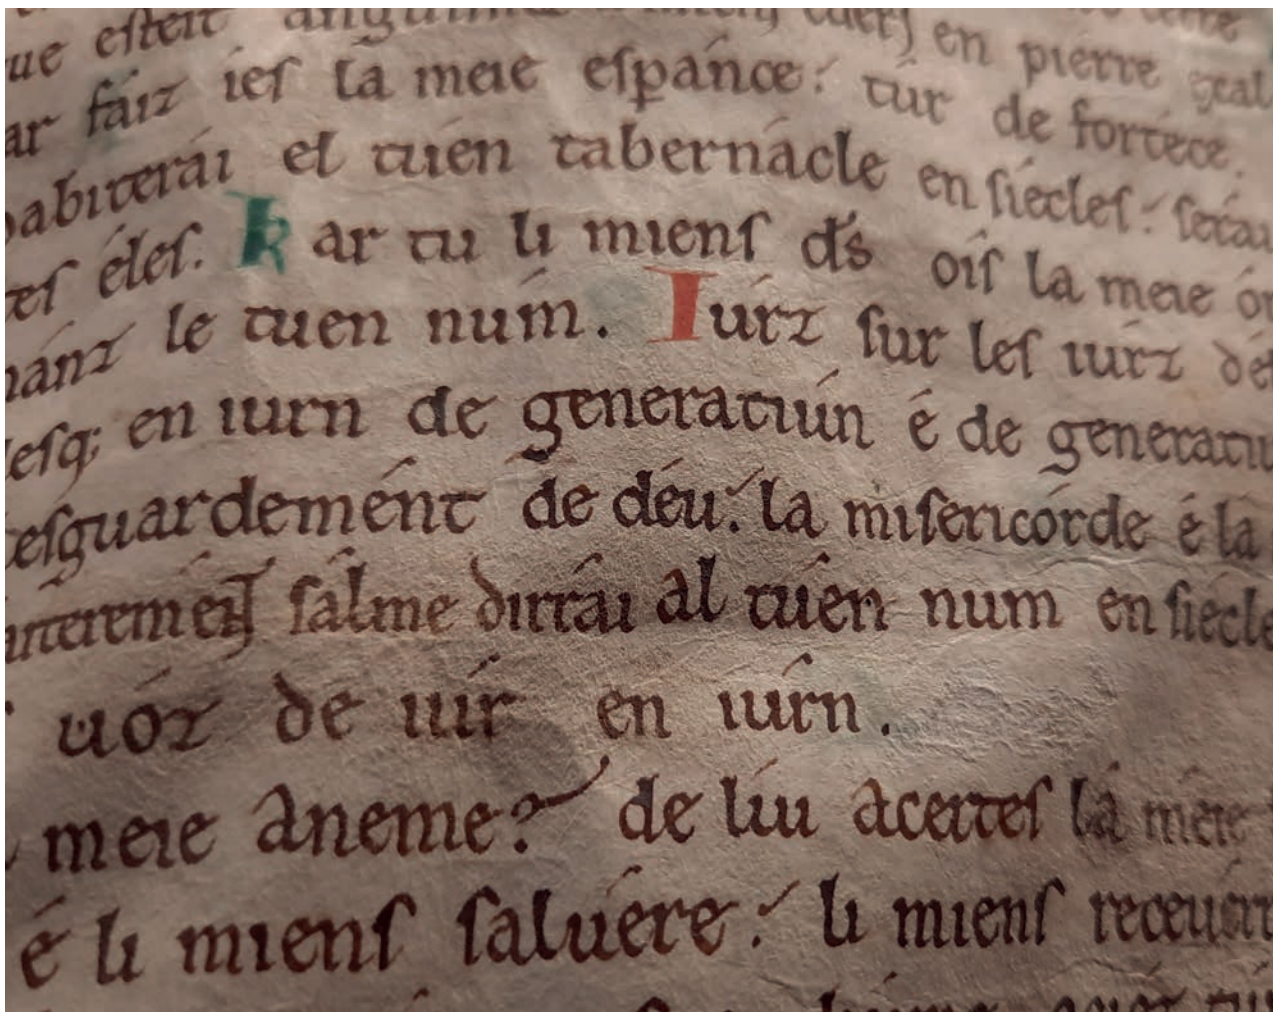 ue esteit en pierre
ar faiz ies la meie espance: tur de fortece.
abiterái el tuén tabernácle en siécles: serai
es éles. Kar tu li miens ds ois la meie ór
ánz le tuen núm. Iúrz sur les iúrz
esq; en iurn de generatiún é de generatiu
esguardemént de déu: la misericórde é la
sálme dirrái al tuén num en siecle
uóz de iúr en iúrn.
meie aneme? de liu acertes la méie
é li miens saluére: li miens receuerre